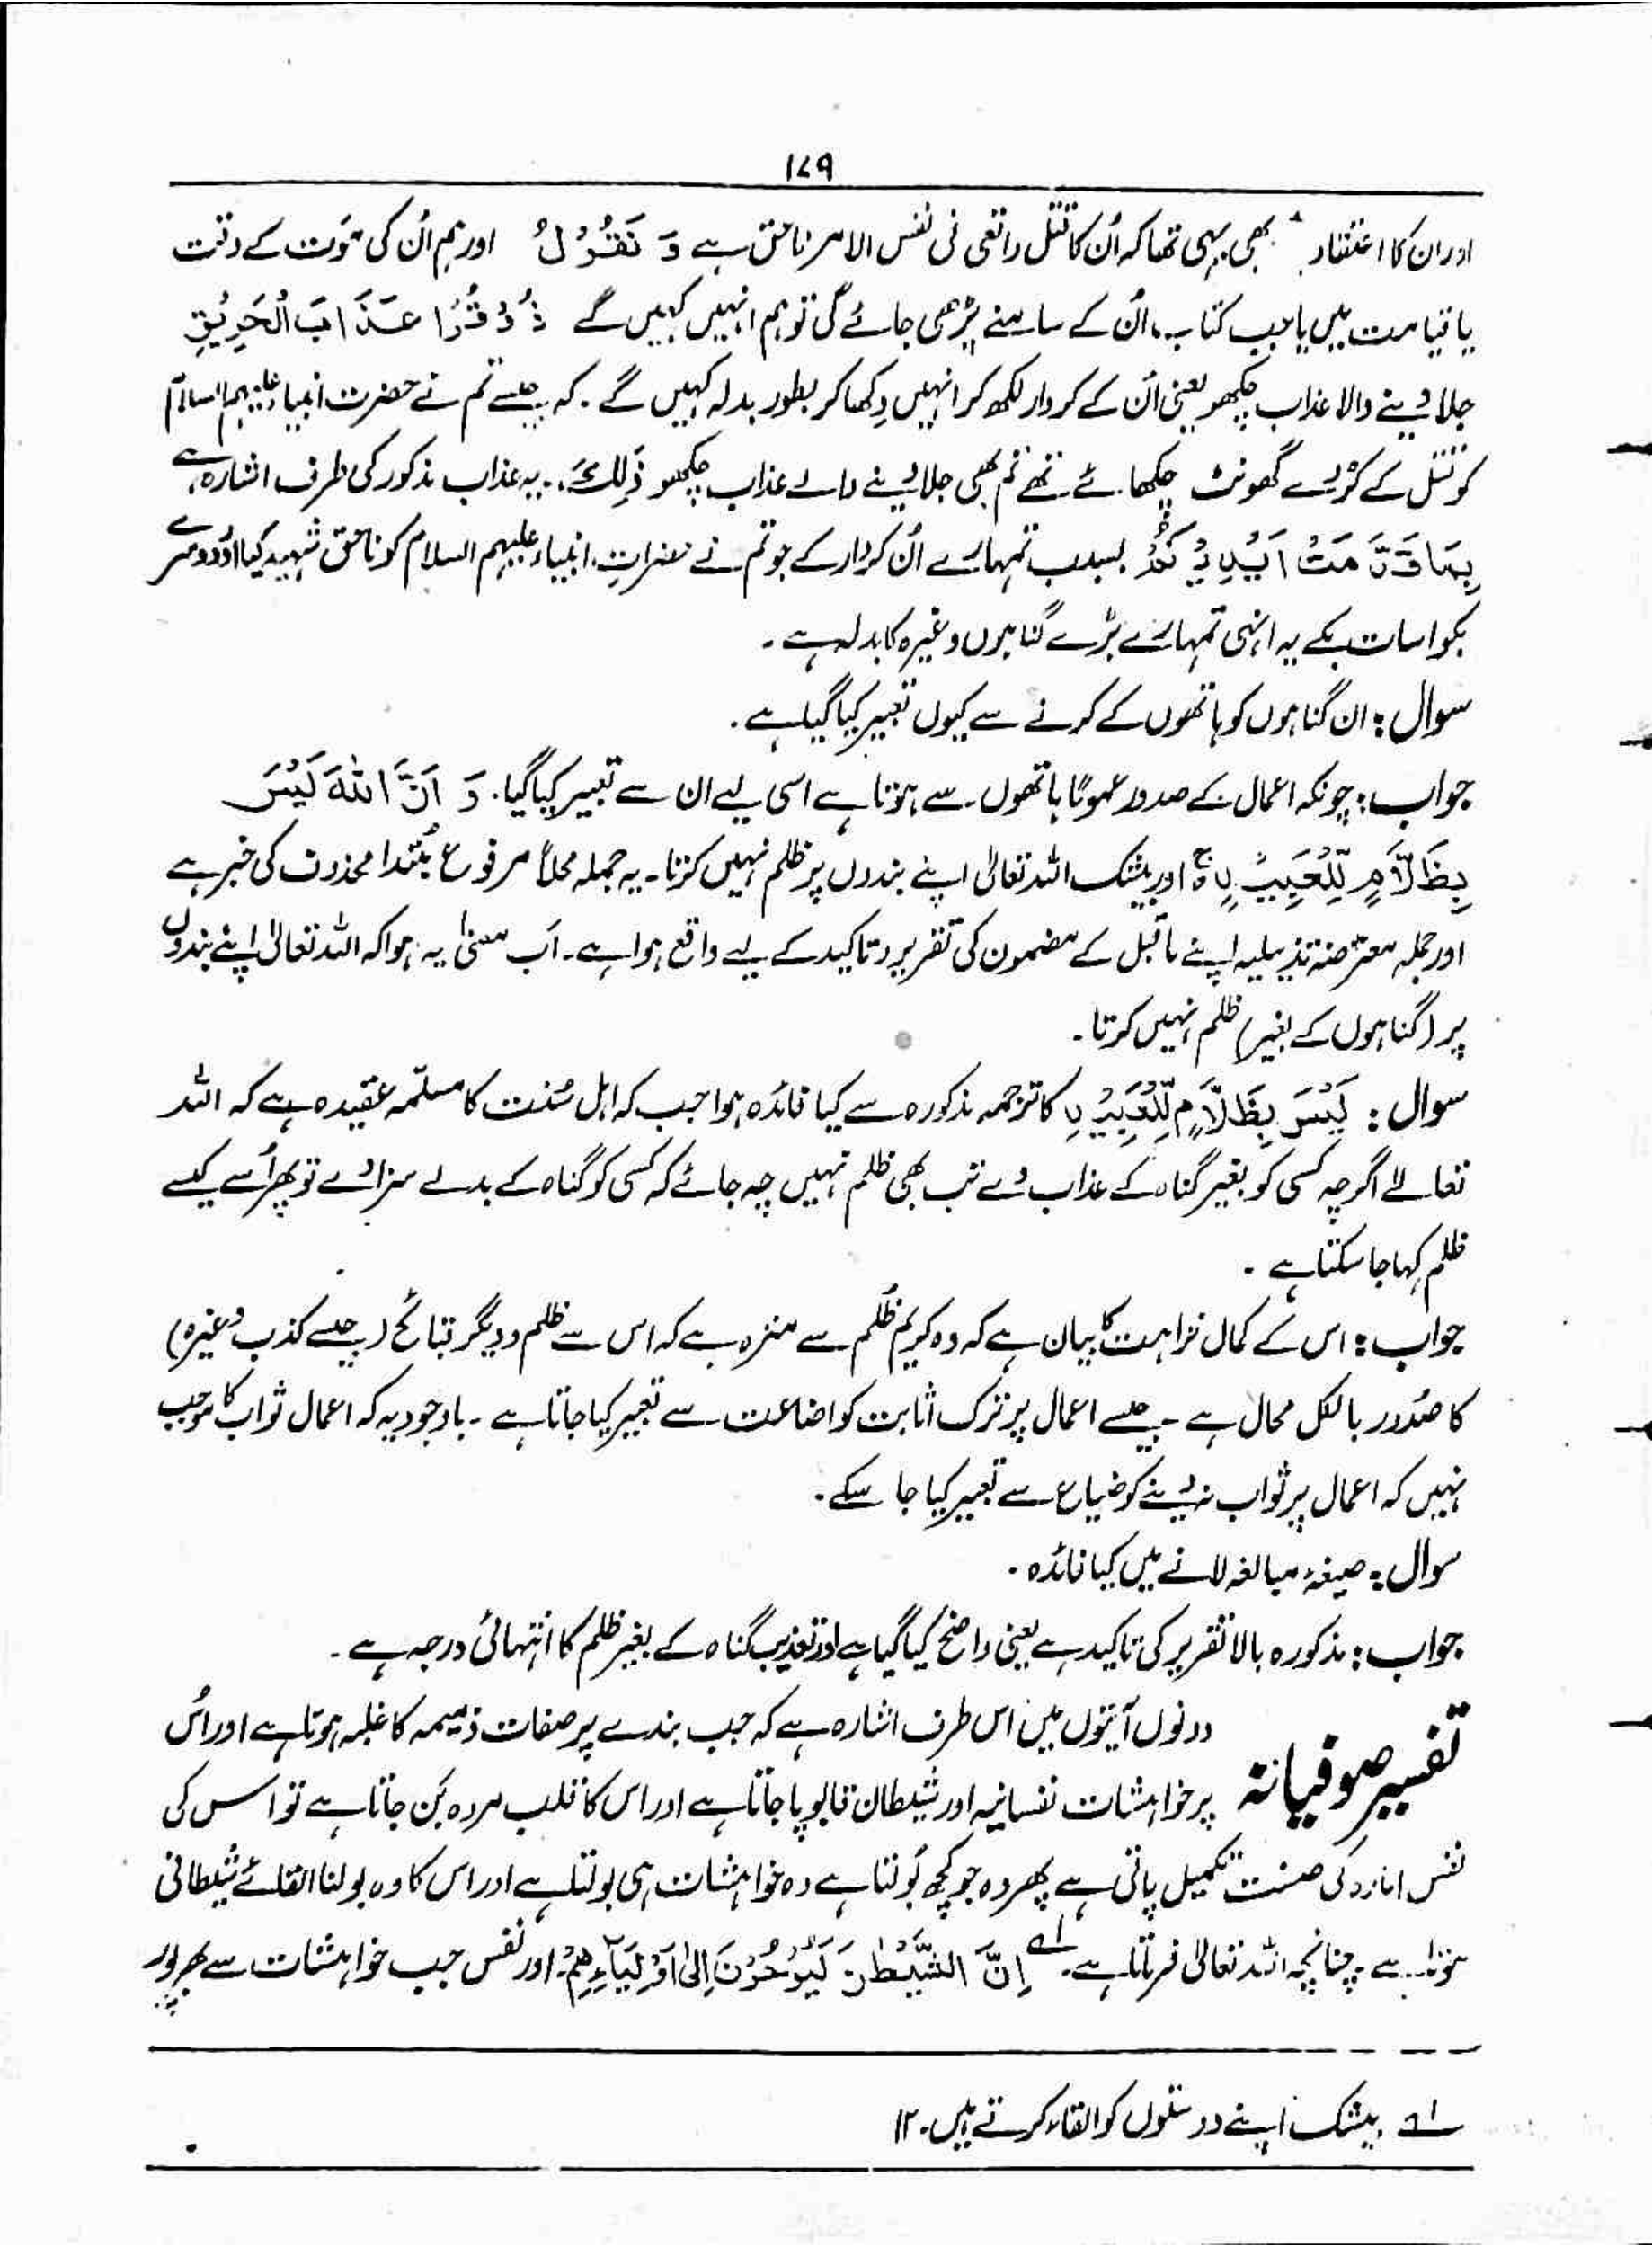 ۱۷۹
اور ان کا اعتقاد بھی یہی تھا کہ اُن کا قتل واقعی فی نفس الامر ناحق ہے وَ نَقُوْلُ اور ہم اُن کی مَوت کے وقت
یا قیامت میں یا جب کتاب اُن کے سامنے پڑھی جائے گی تو ہم انہیں کہیں گے ذُوْقُوْا عَذَابَ الْحَرِيْقِ
جلا دینے والا عذاب چکھو یعنی اُن کے کردار لکھ کر انہیں دِکھا کر بطور بدلہ کہیں گے۔ کہ جیسے تم نے حضرت انبیاء علیہم السلام
کو قتل کے کڑوے گھونٹ چکھائے تھے تم بھی جلا دینے والے عذاب چکھو ذٰلِكَ، یہ عذاب مذکور کی طرف اشارہ ہے
بِمَا قَدَّمَتْ اَيْدِيْكُمْ بسبب تمہارے اُن کردار کے جو تم نے حضرات انبیاء علیہم السلام کو ناحق شہید کیا اور دوسرے
بکواسات بکے یہ انہی تمہارے بڑے گناہوں وغیرہ کا بدلہ ہے۔
سوال : ان گناہوں کو ہاتھوں کے کرنے سے کیوں تعبیر کیا گیا ہے۔
جواب : چونکہ اعمال کے صدور عموماً ہاتھوں سے ہوتا ہے اسی لیے ان سے تعبیر کیا گیا۔ وَ اَنَّ اللّٰهَ لَيْسَ
بِظَلَّامٍ لِّلْعَبِيْدِ ۝ۚ اور بیشک اللہ تعالیٰ اپنے بندوں پر ظلم نہیں کرتا۔ یہ جملہ محلاً مرفوع مُبتدا محذوف کی خبر ہے
اور جملہ معترضہ تذییلیہ اپنے ماقبل کے مضمون کی تقریر و تاکید کے لیے واقع ہوا ہے۔ اَب معنیٰ یہ ہوا کہ اللہ تعالیٰ اپنے بندوں
پر (گناہوں کے بغیر) ظلم نہیں کرتا۔
سوال : لَيْسَ بِظَلَّامٍ لِّلْعَبِيْدِ کا ترجمہ مذکورہ سے کیا فائدہ ہوا جب کہ اہل سُنت کا مسلّمہ عقیدہ ہے کہ اللہ
تعالےٰ اگرچہ کسی کو بغیر گناہ کے عذاب دے تب بھی ظلم نہیں چہ جائے کہ کسی کو گناہ کے بدلے سزا دے تو پھر اُسے کیسے
ظلم کہا جا سکتا ہے۔
جواب : اس کے کمال نزاہت کا بیان ہے کہ وہ کریم ظُلم سے منزہ ہے کہ اس سے ظلم و دیگر قبائح (جیسے کذب وغیرہ)
کا صُدور بالکل محال ہے۔ جیسے اعمال پر ترک اثابت کو اضاعت سے تعبیر کیا جاتا ہے۔ باوجودیہ کہ اعمال ثواب کا موجب
نہیں کہ اعمال پر ثواب نہ دینے کو ضیاع سے تعبیر کیا جا سکے۔
سوال : صیغۂ مبالغہ لانے میں کیا فائدہ۔
جواب : مذکورہ بالا تقریر کی تاکید ہے یعنی واضح کیا گیا ہے اور تعذیب گناہ کے بغیر ظلم کا انتہائی درجہ ہے۔
تفسیر صوفیانہ
دونوں آیتوں میں اس طرف اشارہ ہے کہ جب بندے پر صفات ذمیمہ کا غلبہ ہوتا ہے اور اُس
پر خواہشات نفسانیہ اور شیطان قابو پا جاتا ہے اور اس کا قلب مردہ بَن جاتا ہے تو اس کی
نفس امارہ کی صفت تکمیل پاتی ہے پھر وہ جو کچھ بولتا ہے وہ خواہشات ہی بولتا ہے اور اس کا وہ بولنا القائے شیطانی
ہوتا ہے۔ چنانچہ اللہ تعالیٰ فرماتا ہے۔ ؂۱ اِنَّ الشَّيٰطِيْنَ لَيُوْحُوْنَ اِلٰى اَوْلِيَآءِهِمْ، اور نفس جب خواہشات سے بھرپور
؂۱ بیشک اپنے دوستوں کو القاء کرتے ہیں۔ ۱۲